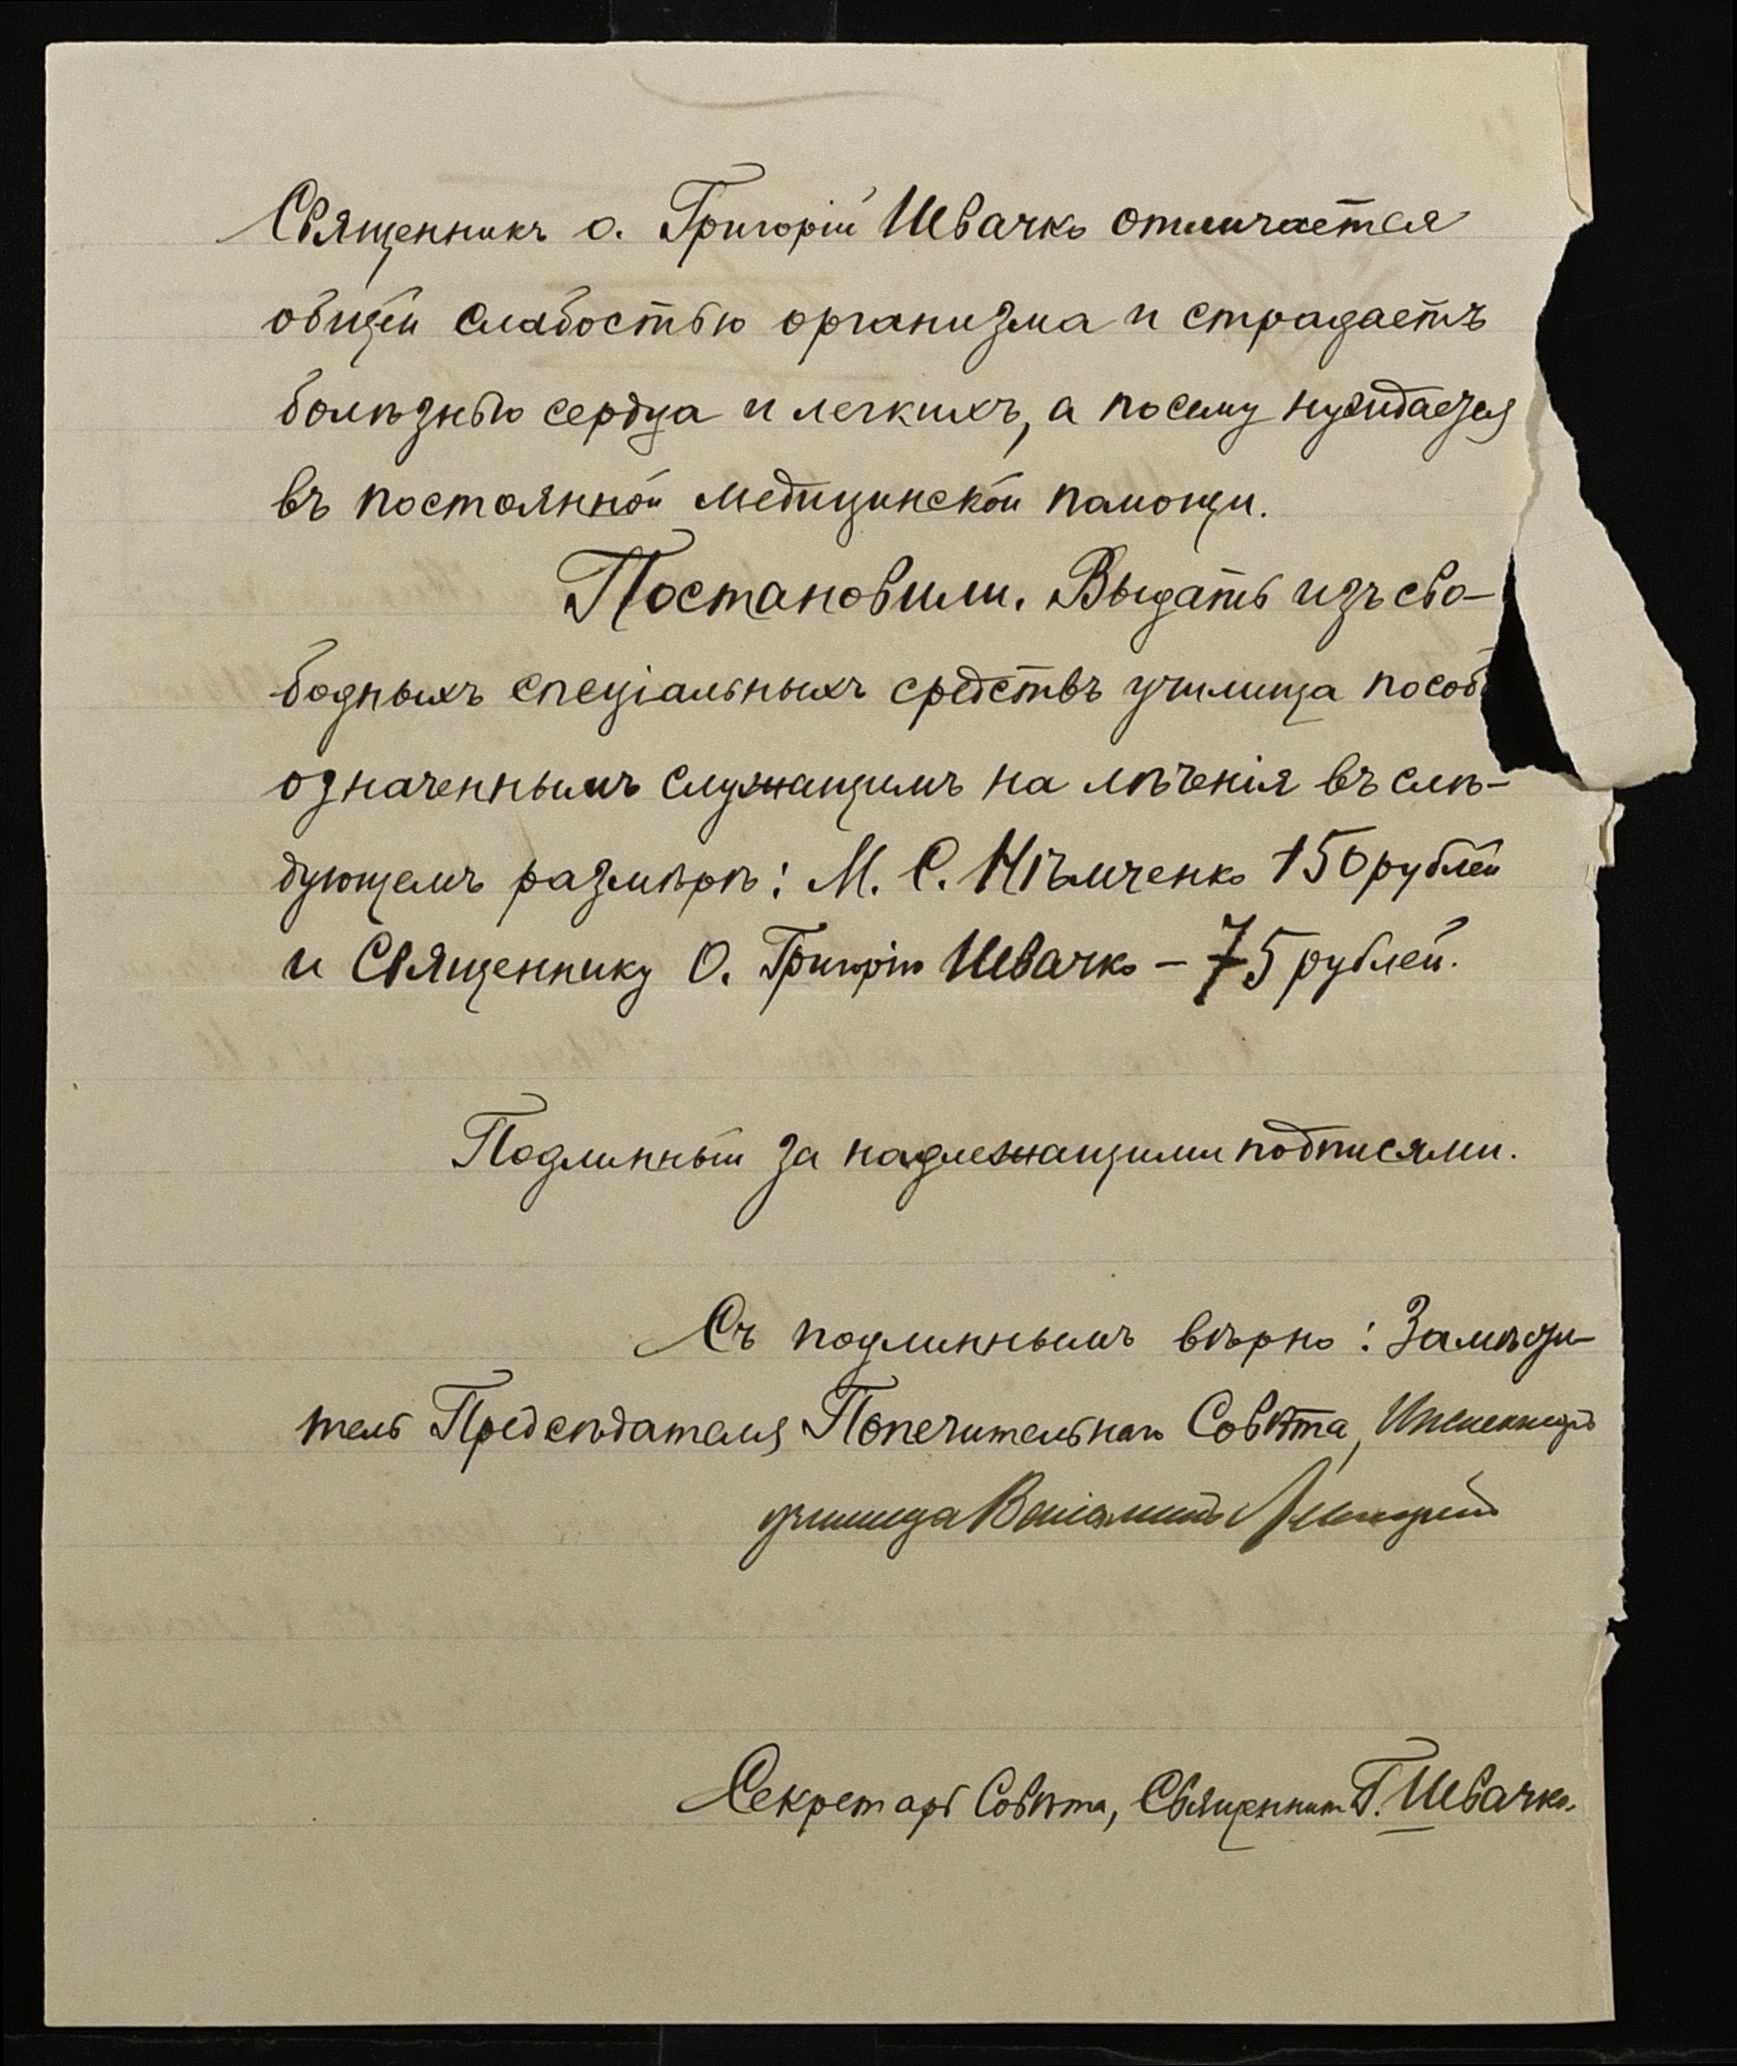 Священникъ о. Григорій Швачко отличается
общей слабостью организма и страдаетъ
болѣзнью сердца и легкихъ, а посему нуждается
въ постоянной медицинской помощи.
Постановили. Выдать изъ сво-
бодныхъ спеціальныхъ средствъ училища пособ
означеннымъ служащимъ на лѣченія въ слѣ-
дующемъ размѣрѣ: М. С. Нѣмченко 150 рублей
и Священнику О. Григорію Швачко – 75 рублей.
Подлинный за надлежащими подписями.
Съ подлиннымъ вѣрно: Замѣсти-
тель Предсѣдателя Попечительнаго Совѣта,
училища
Секретарь Совѣта, Священникъ Г. Швачко.